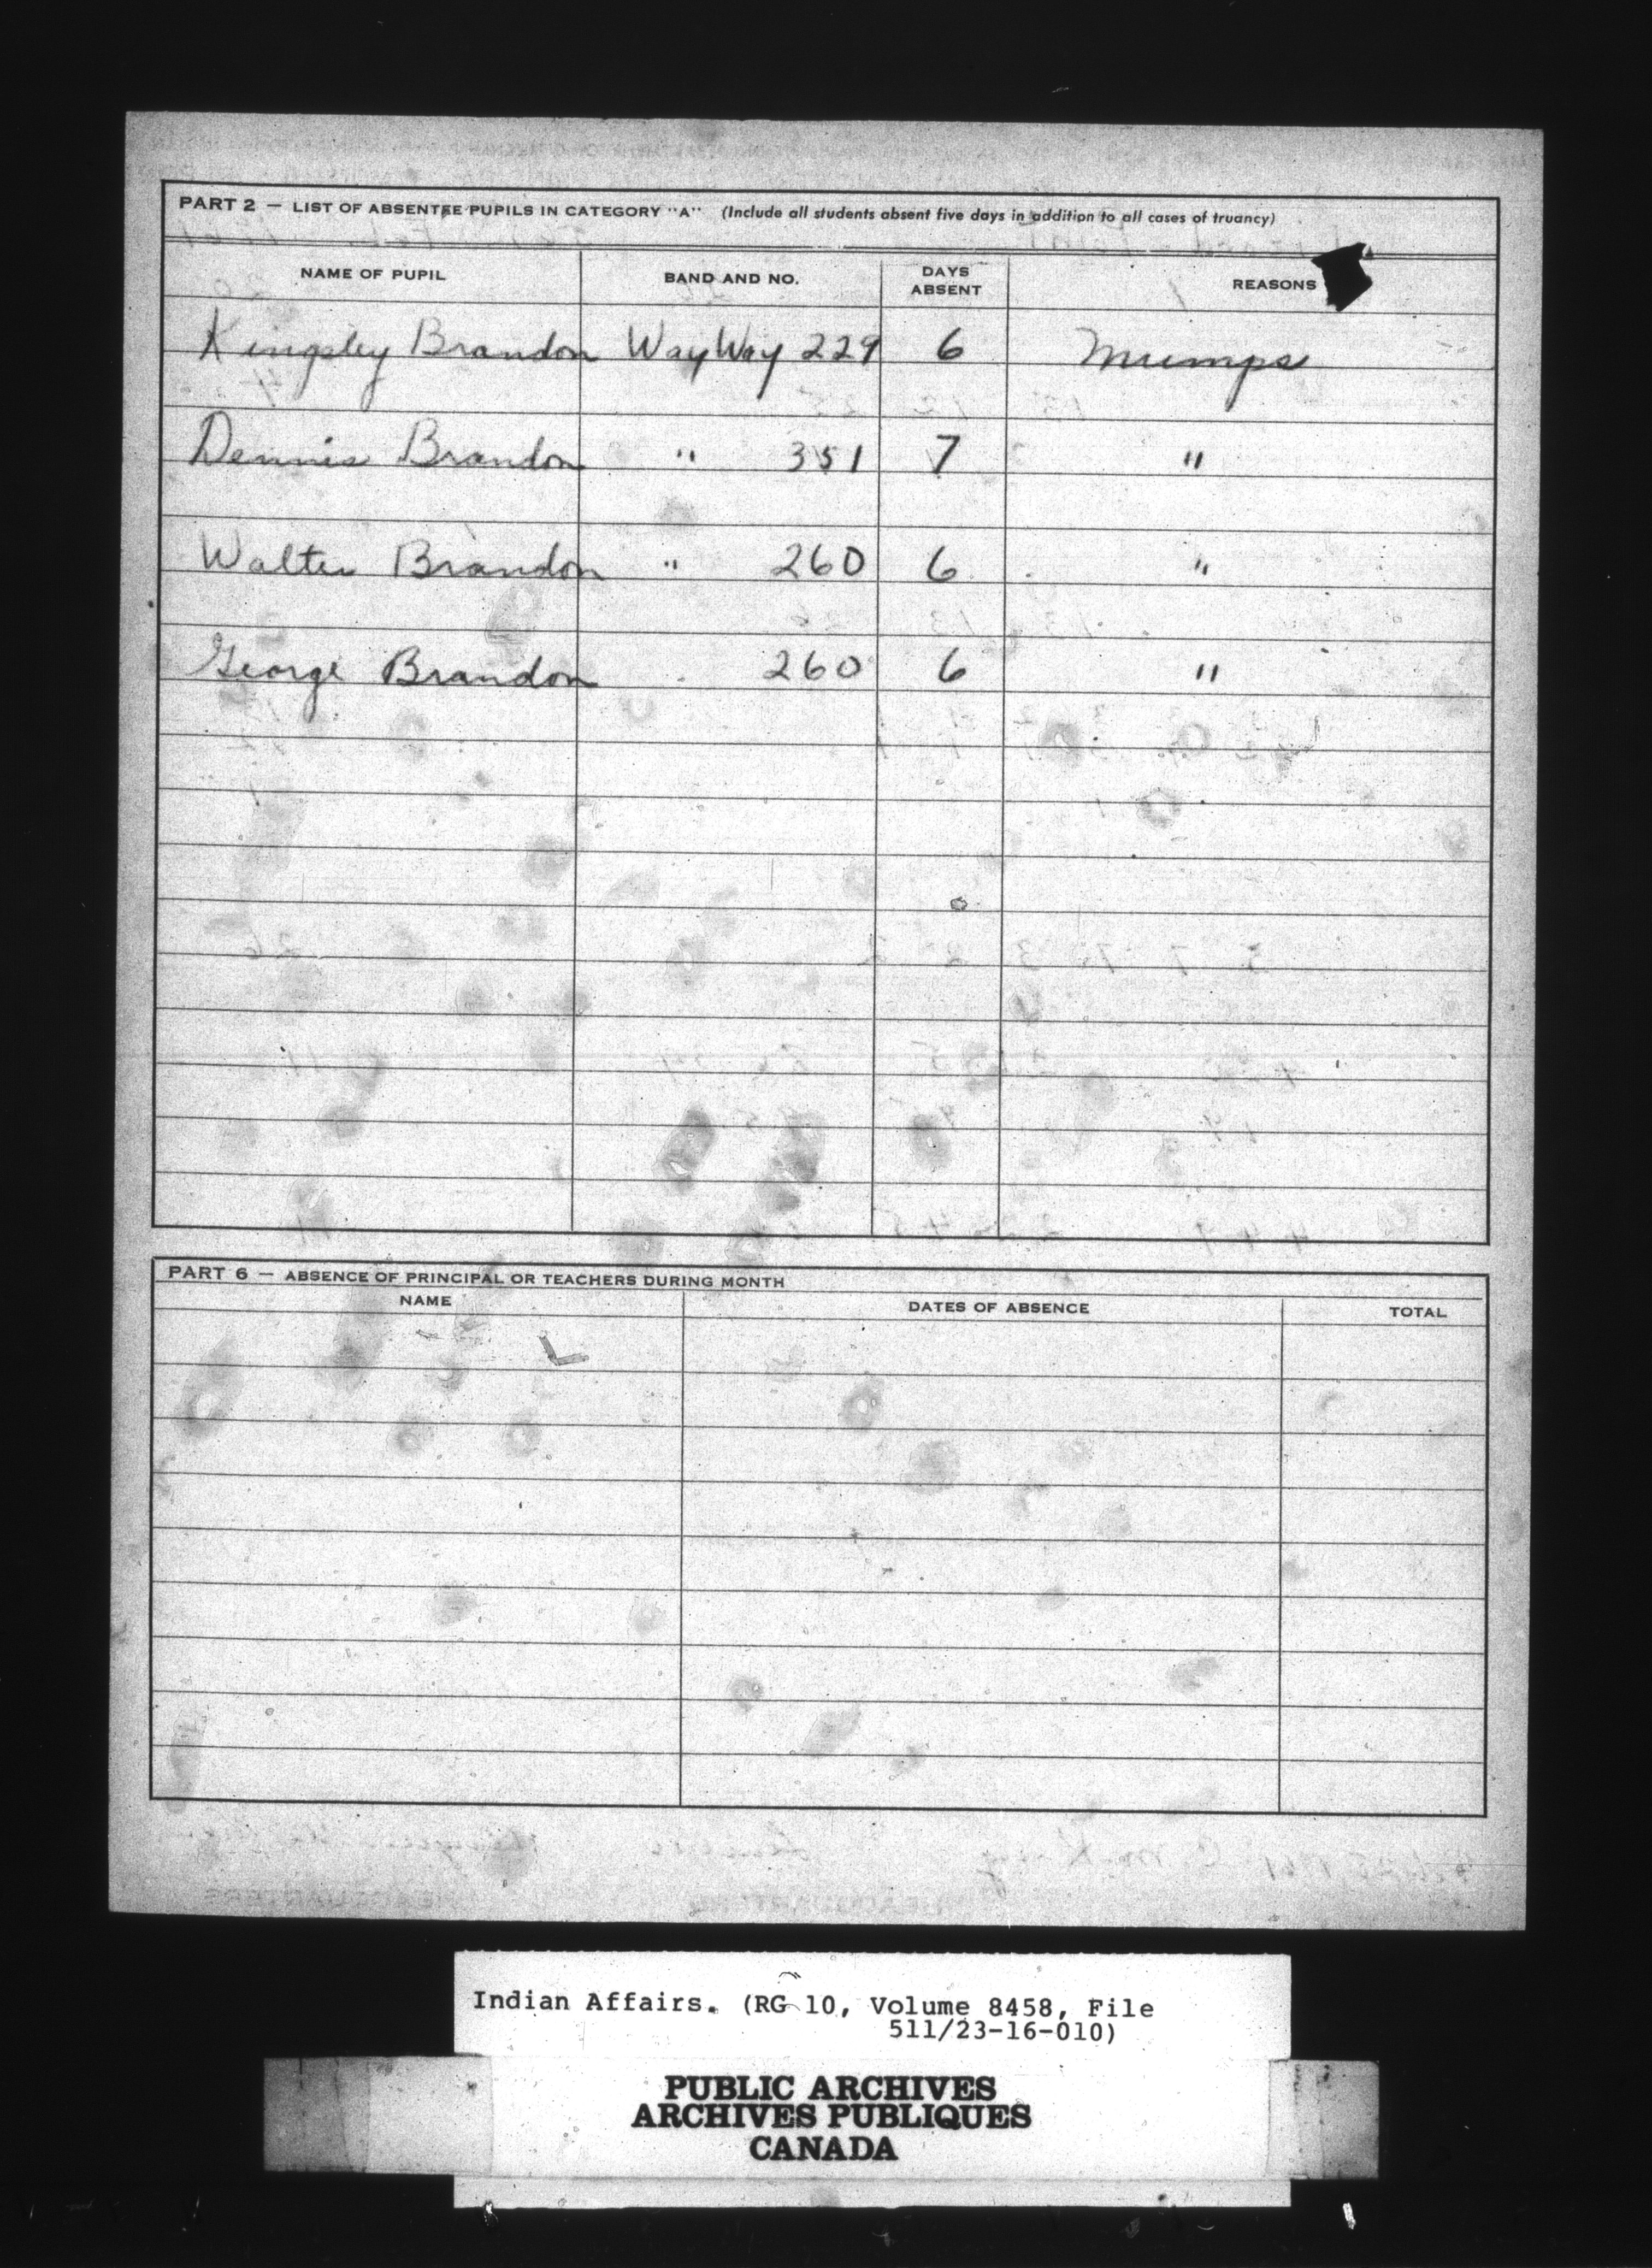 PART 2 — LIST OF ABSENTEE PUPILS IN CATEGORY "A" (Include all students absent five days in addition to all cases of truancy)
NAME OF PUPIL BAND AND NO. DAYS ABSENT REASONS
Kingsley Brandon WayWay 229 6 Mumps
Dennis Brandon " 351 7 "
Walter Brandon " 260 6 "
George Brandon 260 6 "
PART 6 — ABSENCE OF PRINCIPAL OR TEACHERS DURING MONTH
NAME DATES OF ABSENCE TOTAL
Indian Affairs. (RG 10, Volume 8458, File
511/23-16-010)
PUBLIC ARCHIVES
ARCHIVES PUBLIQUES
CANADA